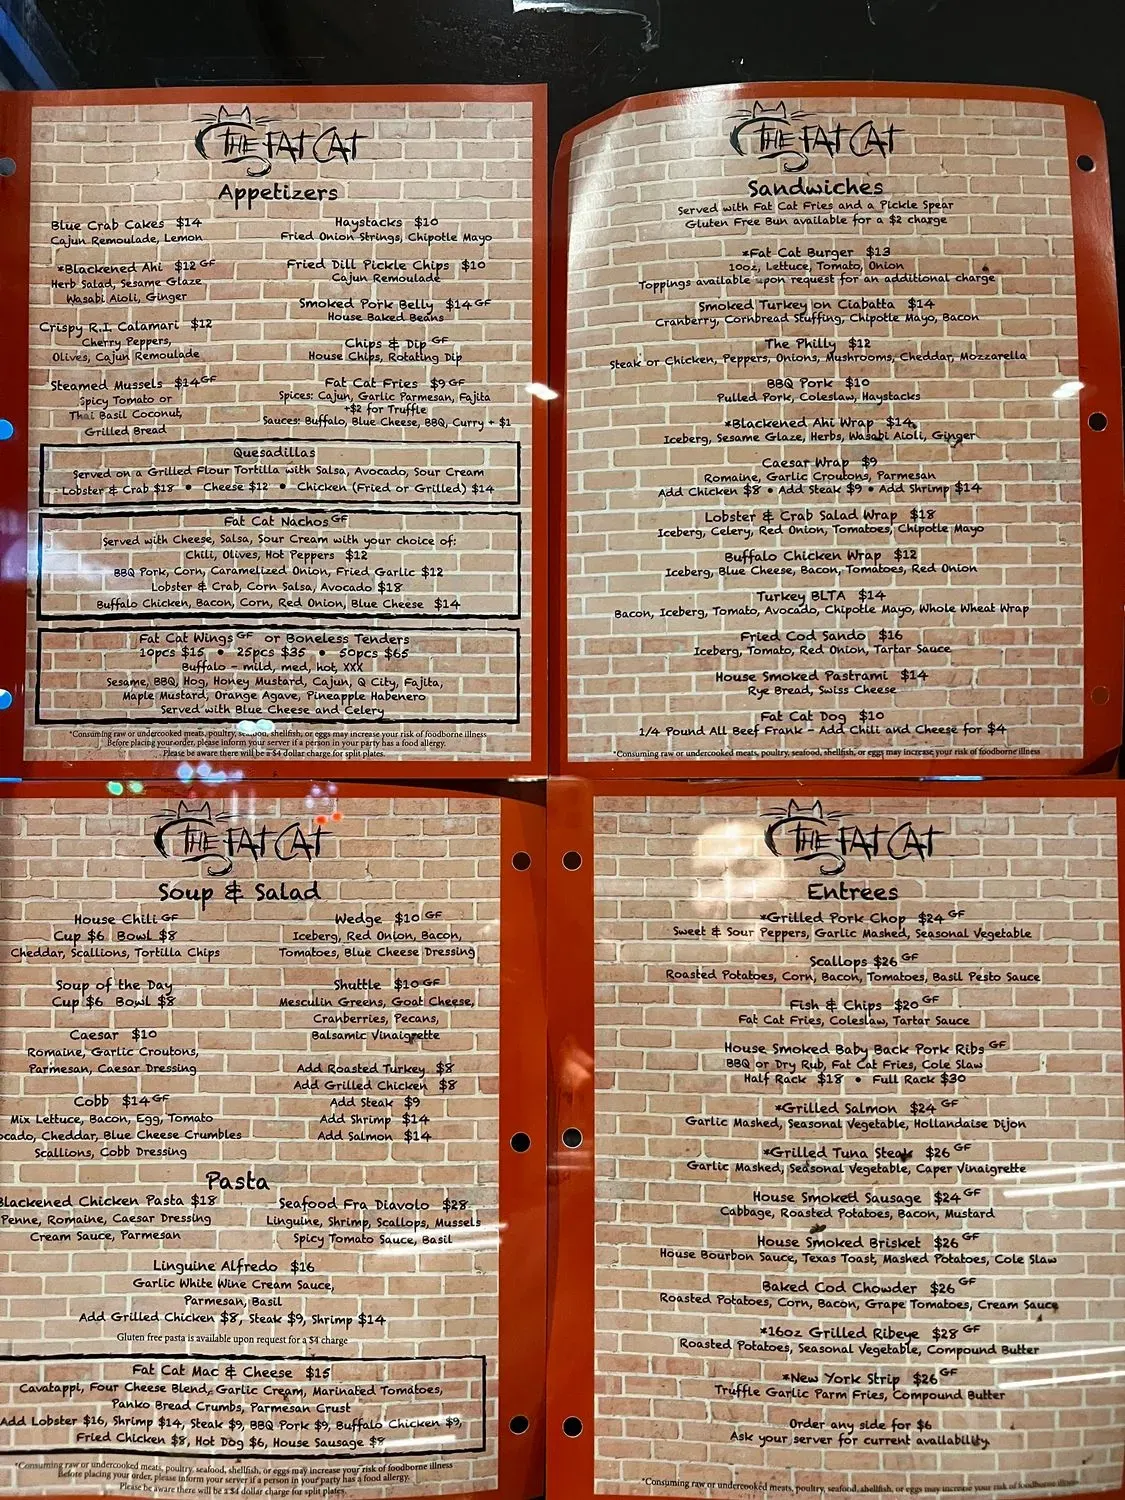 THE FAT CAT
Appetizers
Blue Crab Cakes $14
Cajun Remoulade, Lemon
*Blackened Ahi $12 GF
Herb Salad, Sesame Glaze
Wasabi Aioli, Ginger
Crispy R.I. Calamari $12
Cherry Peppers,
Olives, Cajun Remoulade
Steamed Mussels $14 GF
Spicy Tomato or
Thai Basil Coconut,
Grilled Bread
Haystacks $10
Fried Onion Strings, Chipotle Mayo
Fried Dill Pickle Chips $10
Cajun Remoulade
Smoked Pork Belly $14 GF
House Baked Beans
Chips & Dip GF
House Chips, Rotating Dip
Fat Cat Fries $9 GF
Spices: Cajun, Garlic Parmesan, Fajita
+$2 for Truffle
Sauces: Buffalo, Blue Cheese, BBQ, Curry + $1
Quesadillas
Served on a Grilled Flour Tortilla with Salsa, Avocado, Sour Cream
Lobster & Crab $18 • Cheese $12 • Chicken (Fried or Grilled) $14
Fat Cat Nachos GF
Served with Cheese, Salsa, Sour Cream with your choice of:
Chili, Olives, Hot Peppers $12
BBQ Pork, Corn, Caramelized Onion, Fried Garlic $12
Lobster & Crab, Corn Salsa, Avocado $18
Buffalo Chicken, Bacon, Corn, Red Onion, Blue Cheese $14
Fat Cat Wings GF or Boneless Tenders
10pcs $15 • 25pcs $35 • 50pcs $65
Buffalo - mild, med, hot, XXX
Sesame, BBQ, Hog, Honey Mustard, Cajun, Q City, Fajita,
Maple Mustard, Orange Agave, Pineapple Habenero
Served with Blue Cheese and Celery
*Consuming raw or undercooked meats, poultry, seafood, shellfish, or eggs may increase your risk of foodborne illness
Before placing your order, please inform your server if a person in your party has a food allergy.
Please be aware there will be a $4 dollar charge for split plates.
THE FAT CAT
Sandwiches
Served with Fat Cat Fries and a Pickle Spear
Gluten Free Bun available for a $2 charge
*Fat Cat Burger $13
10oz, Lettuce, Tomato, Onion
Toppings available upon request for an additional charge
Smoked Turkey on Ciabatta $14
Cranberry, Cornbread Stuffing, Chipotle Mayo, Bacon
The Philly $12
Steak or Chicken, Peppers, Onions, Mushrooms, Cheddar, Mozzarella
BBQ Pork $10
Pulled Pork, Coleslaw, Haystacks
*Blackened Ahi Wrap $14
Iceberg, Sesame Glaze, Herbs, Wasabi Aioli, Ginger
Caesar Wrap $9
Romaine, Garlic Croutons, Parmesan
Add Chicken $8 • Add Steak $9 • Add Shrimp $14
Lobster & Crab Salad Wrap $18
Iceberg, Celery, Red Onion, Tomatoes, Chipotle Mayo
Buffalo Chicken Wrap $12
Iceberg, Blue Cheese, Bacon, Tomatoes, Red Onion
Turkey BLTA $14
Bacon, Iceberg, Tomato, Avocado, Chipotle Mayo, Whole Wheat Wrap
Fried Cod Sando $16
Iceberg, Tomato, Red Onion, Tartar Sauce
House Smoked Pastrami $14
Rye Bread, Swiss Cheese
Fat Cat Dog $10
1/4 Pound All Beef Frank - Add Chili and Cheese for $4
*Consuming raw or undercooked meats, poultry, seafood, shellfish, or eggs may increase your risk of foodborne illness
THE FAT CAT
Soup & Salad
House Chili GF
Cup $6 Bowl $8
Cheddar, Scallions, Tortilla Chips
Soup of the Day
Cup $6 Bowl $8
Caesar $10
Romaine, Garlic Croutons,
Parmesan, Caesar Dressing
Cobb $14 GF
Mix Lettuce, Bacon, Egg, Tomato
ocado, Cheddar, Blue Cheese Crumbles
Scallions, Cobb Dressing
Wedge $10 GF
Iceberg, Red Onion, Bacon,
Tomatoes, Blue Cheese Dressing
Shuttle $10 GF
Mesculin Greens, Goat Cheese,
Cranberries, Pecans,
Balsamic Vinaigrette
Add Roasted Turkey $8
Add Grilled Chicken $8
Add Steak $9
Add Shrimp $14
Add Salmon $14
Pasta
Blackened Chicken Pasta $18
Penne, Romaine, Caesar Dressing
Cream Sauce, Parmesan
Seafood Fra Diavolo $28
Linguine, Shrimp, Scallops, Mussels
Spicy Tomato Sauce, Basil
Linguine Alfredo $16
Garlic White Wine Cream Sauce,
Parmesan, Basil
Add Grilled Chicken $8, Steak $9, Shrimp $14
Gluten free pasta is available upon request for a $4 charge
Fat Cat Mac & Cheese $15
Cavatappi, Four Cheese Blend, Garlic Cream, Marinated Tomatoes,
Panko Bread Crumbs, Parmesan Crust
Add Lobster $16, Shrimp $14, Steak $9, BBQ Pork $9, Buffalo Chicken $9,
Fried Chicken $8, Hot Dog $6, House Sausage $8
*Consuming raw or undercooked meats, poultry, seafood, shellfish, or eggs may increase your risk of foodborne illness
Before placing your order, please inform your server if a person in your party has a food allergy.
Please be aware there will be a $4 dollar charge for split plates.
THE FAT CAT
Entrees
*Grilled Pork Chop $24 GF
Sweet & Sour Peppers, Garlic Mashed, Seasonal Vegetable
Scallops $26 GF
Roasted Potatoes, Corn, Bacon, Tomatoes, Basil Pesto Sauce
Fish & Chips $20 GF
Fat Cat Fries, Coleslaw, Tartar Sauce
House Smoked Baby Back Pork Ribs GF
BBQ or Dry Rub, Fat Cat Fries, Cole Slaw
Half Rack $18 • Full Rack $30
*Grilled Salmon $24 GF
Garlic Mashed, Seasonal Vegetable, Hollandaise Dijon
*Grilled Tuna Steak $26 GF
Garlic Mashed, Seasonal Vegetable, Caper Vinaigrette
House Smoked Sausage $24 GF
Cabbage, Roasted Potatoes, Bacon, Mustard
House Smoked Brisket $26 GF
House Bourbon Sauce, Texas Toast, Mashed Potatoes, Cole Slaw
Baked Cod Chowder $26 GF
Roasted Potatoes, Corn, Bacon, Grape Tomatoes, Cream Sauce
*16oz Grilled Ribeye $28 GF
Roasted Potatoes, Seasonal Vegetable, Compound Butter
*New York Strip $26 GF
Truffle Garlic Parm Fries, Compound Butter
Order any side for $6
Ask your server for current availability.
*Consuming raw or undercooked meats, poultry, seafood, shellfish, or eggs may increase your risk of foodborne illness